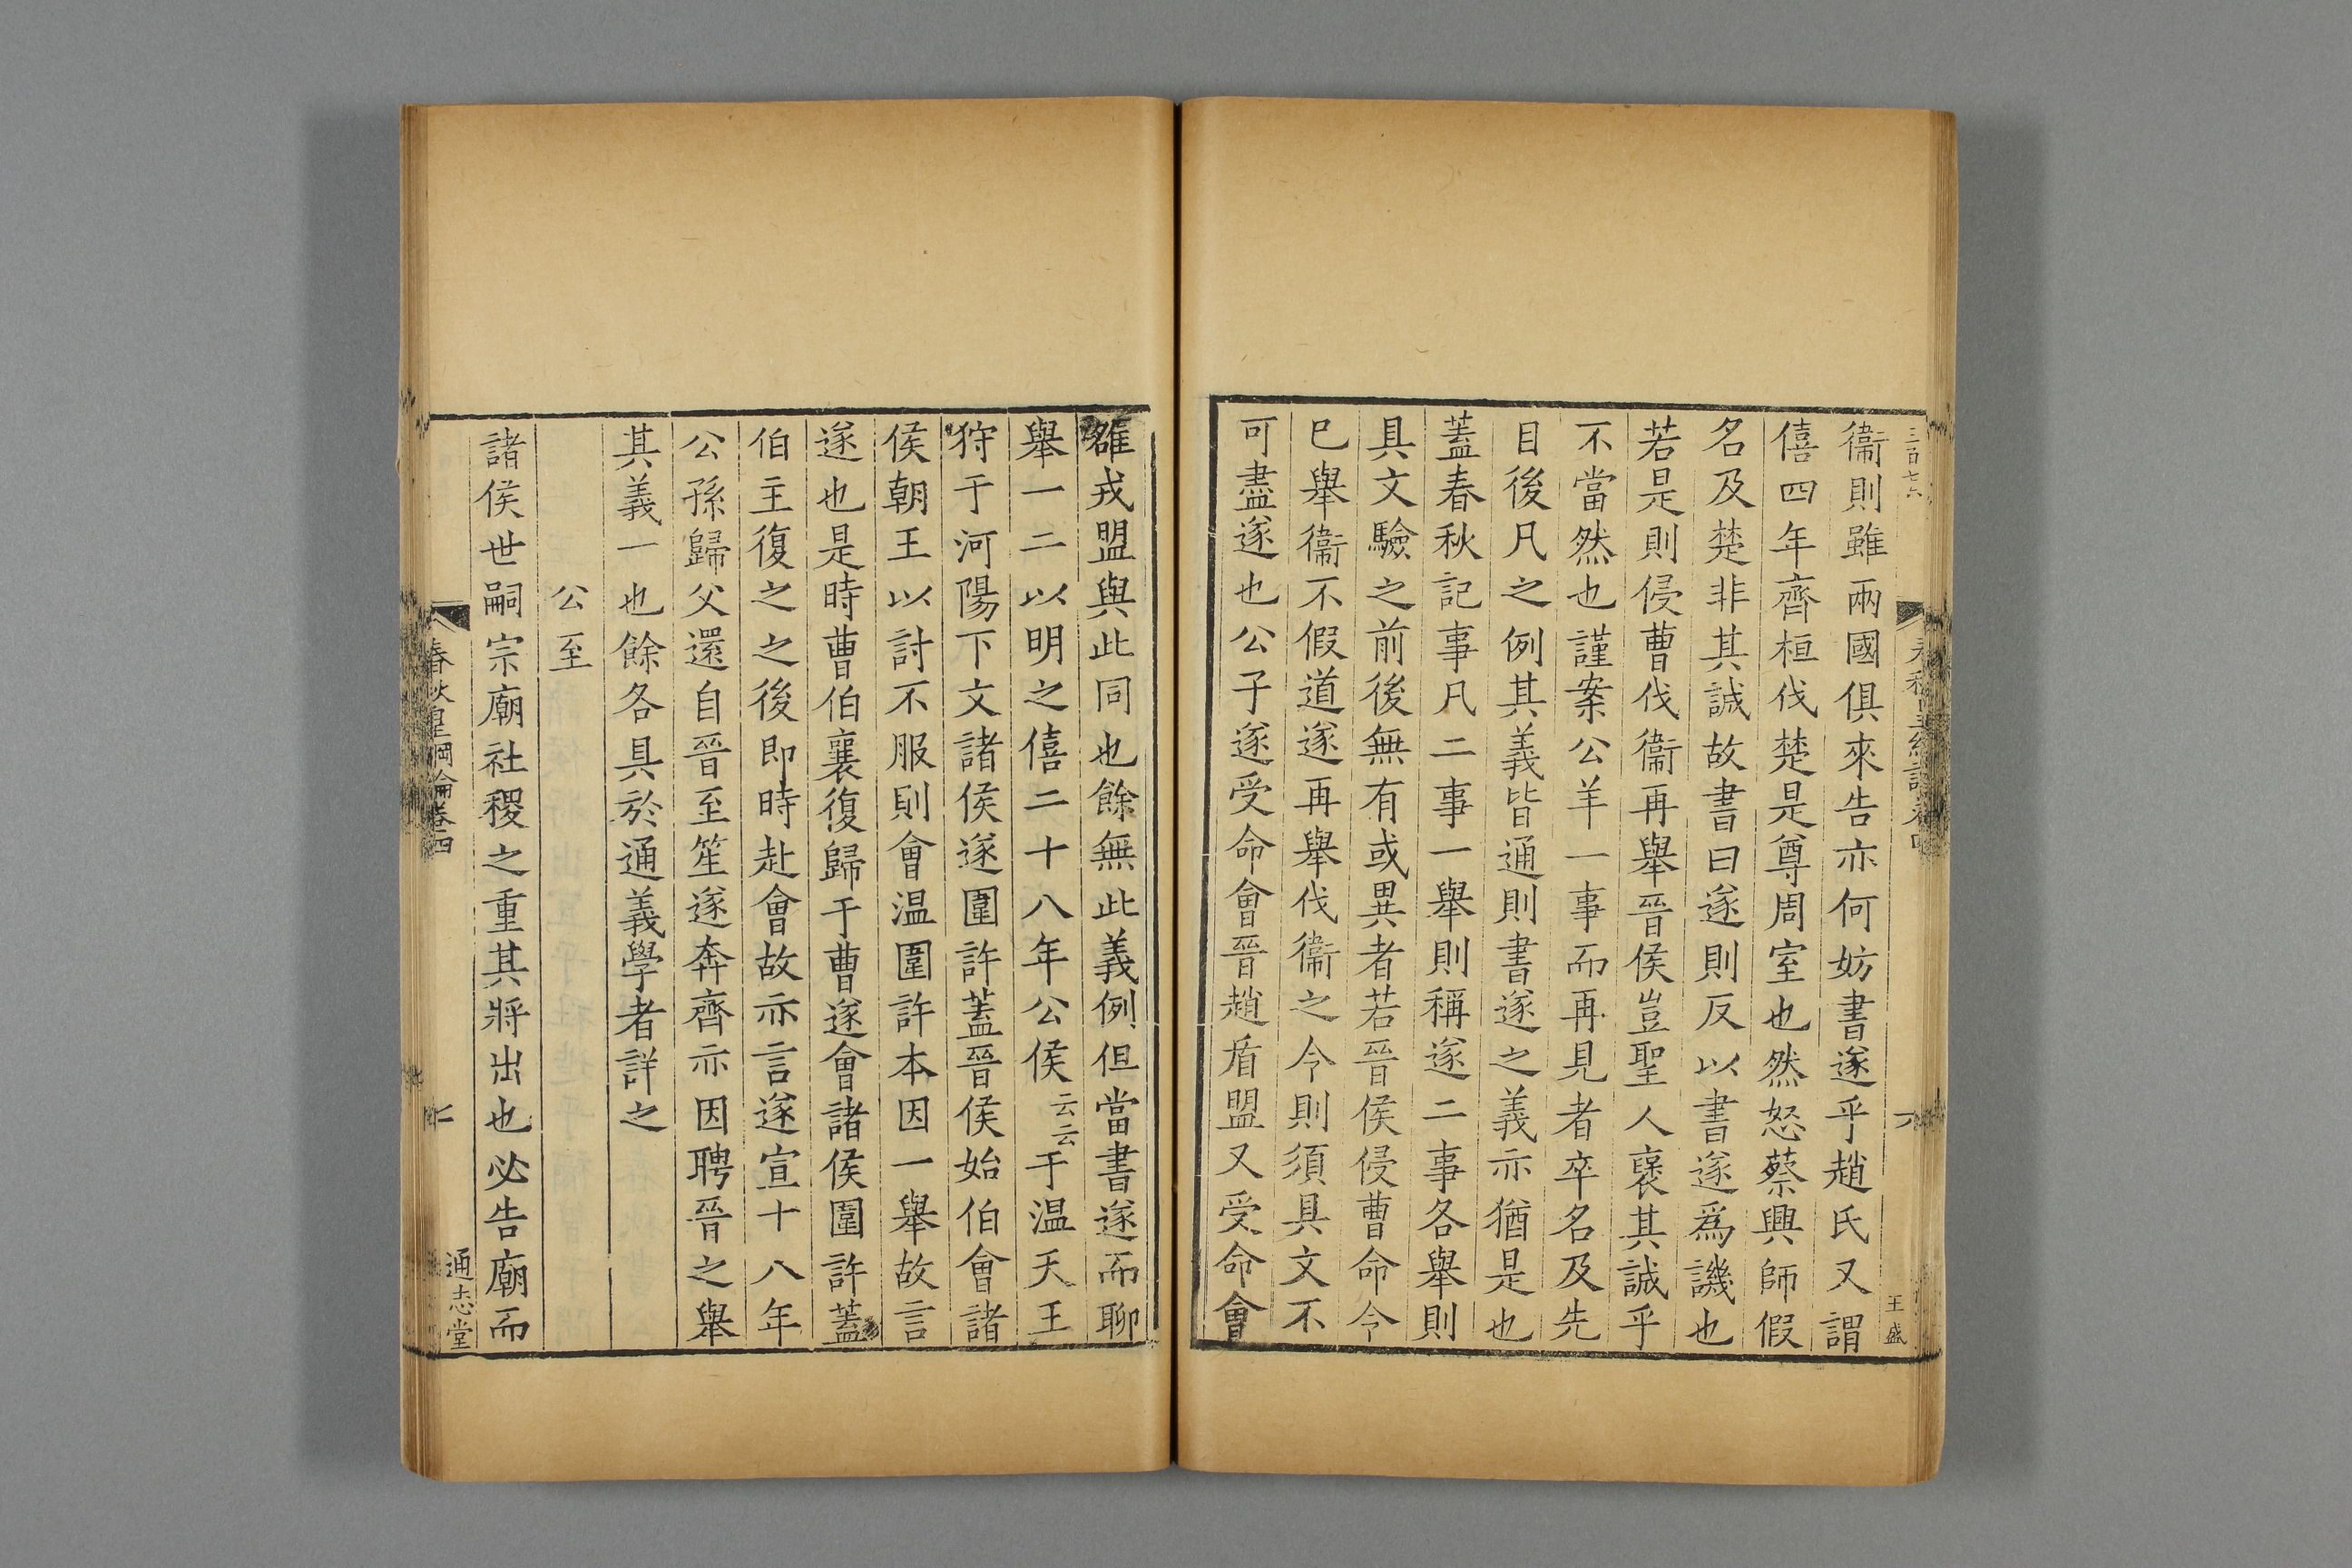 三百七六
王盛
衞則雖兩國俱來告亦何妨書遂乎趙氏又謂
僖四年齊桓伐楚是尊周室也然怒蔡興師假
名及楚非其誠故書曰遂則反以書遂爲譏也
若是則侵曹伐衞再舉晉侯豈聖人褒其誠乎
不當然也謹案公羊一事而再見者卒名及先
目後凡之例其義皆通則書遂之義亦猶是也
蓋春秋記事凡二事一舉則稱遂二事各舉則
具文驗之前後無有或異者若晉侯侵曹命令
已舉衞不假道遂再舉伐衞之令則須具文不
可盡遂也公子遂受命會晉趙盾盟又受命會
雒戎盟與此同也餘無此義例但當書遂而聊
舉一二以明之僖二十八年公侯云云于温天王
狩于河陽下文諸侯遂圍許蓋晉侯始伯會諸
侯朝王以討不服則會温圍許本因一舉故言
遂也是時曹伯襄復歸于曹遂會諸侯圍許蓋
伯主復之之後即時赴會故亦言遂宣十八年
公孫歸父還自晉至笙遂奔齊亦因聘晉之舉
其義一也餘各具於通義學者詳之
公至
諸侯世嗣宗廟社稷之重其將出也必告廟而
春秋皇綱論卷四
通志堂